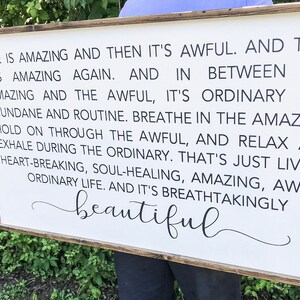 IS AMAZING AND THEN IT'S AWFUL. AND
AMAZING AGAIN. AND IN BETWEEN
AND THE AWFUL, IT'S ORDINARY
AND ROUTINE. BREATHE IN THE
HOLD ON THROUGH THE AWFUL, AND RELAX
EXHALE DURING THE ORDINARY. THAT'S JUST
HEART-BREAKING, SOUL-HEALING, AMAZING,
ORDINARY LIFE. AND IT'S BREATHTAKINGLY
beautiful